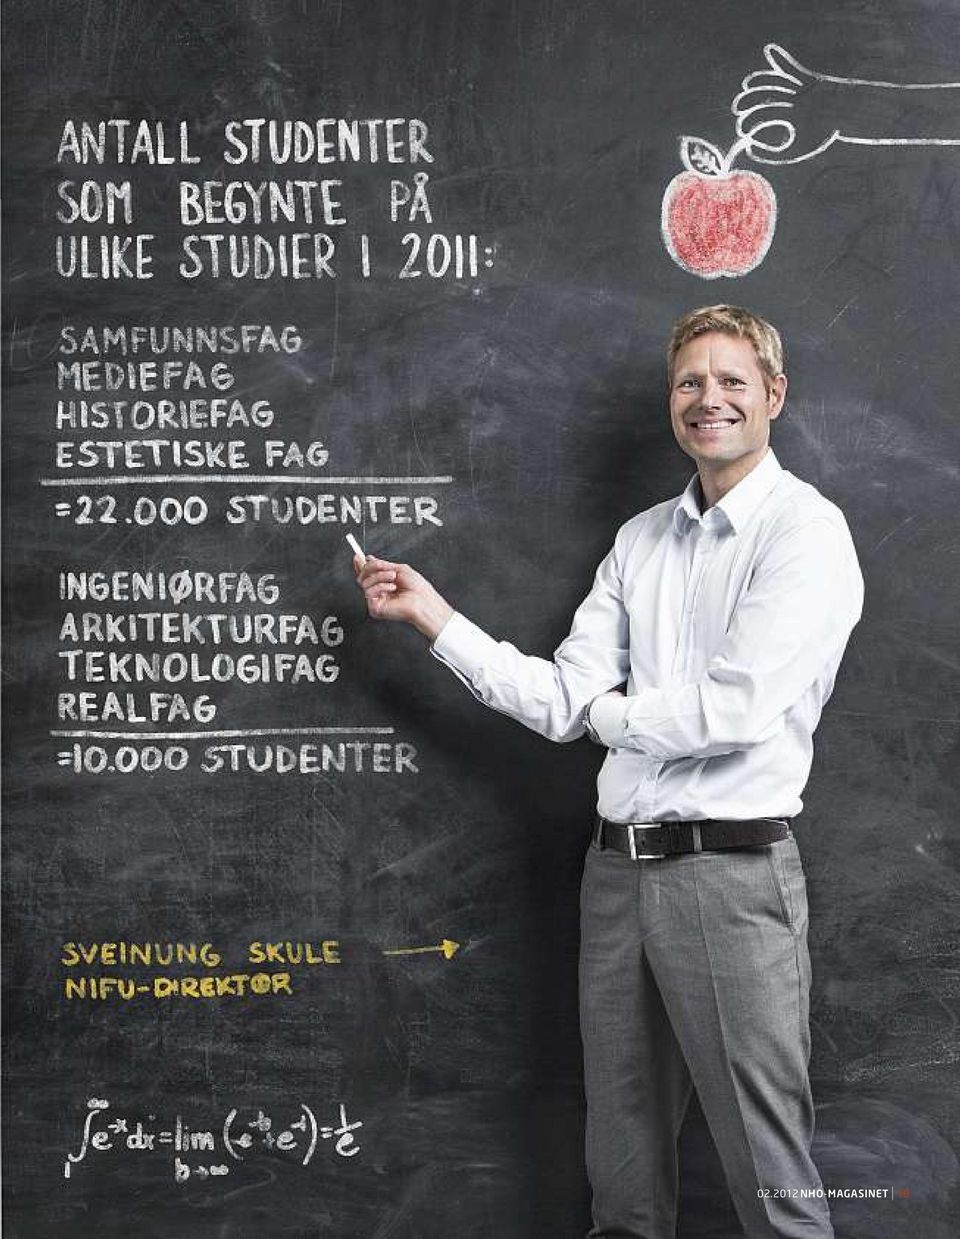 ANTALL STUDENTER
SOM BEGYNTE PÅ
ULIKE STUDIER I 2011:
SAMFUNNSFAG
MEDIEFAG
HISTORIEFAG
ESTETISKE FAG
=22.000 STUDENTER
INGENIØRFAG
ARKITEKTURFAG
TEKNOLOGIFAG
REALFAG
=10.000 STUDENTER
SVEINUNG SKULE
NIFU-DIREKTØR
∫₁^∞ e^-x dx = lim b→∞ (-e^-b + e^-1) = 1/e
02.2012 NHO-MAGASINET |